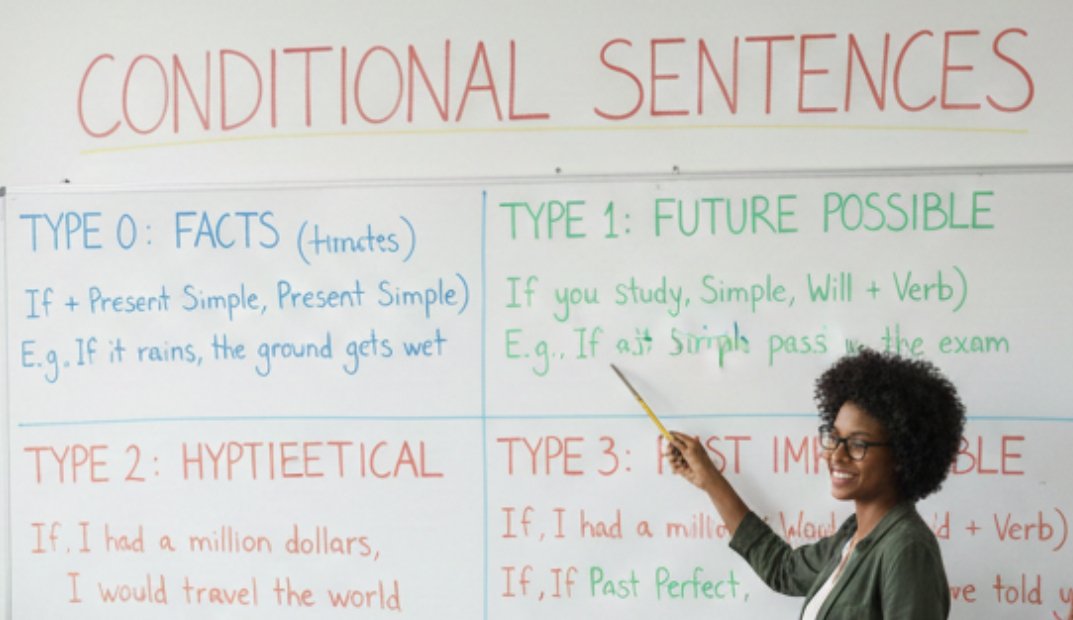 CONDITIONAL SENTENCES
TYPE 0: FACTS
If + Present Simple, Present Simple)
E.g. If it rains, the ground gets wet
TYPE 1: FUTURE POSSIBLE
If you study, Simple, Will + Verb)
E.g., If pass the exam
TYPE 2: HYPTIEETICAL
If, I had a million dollars,
I would travel the world
TYPE 3:
If, I had a + Verb)
If, If Past Perfect, told